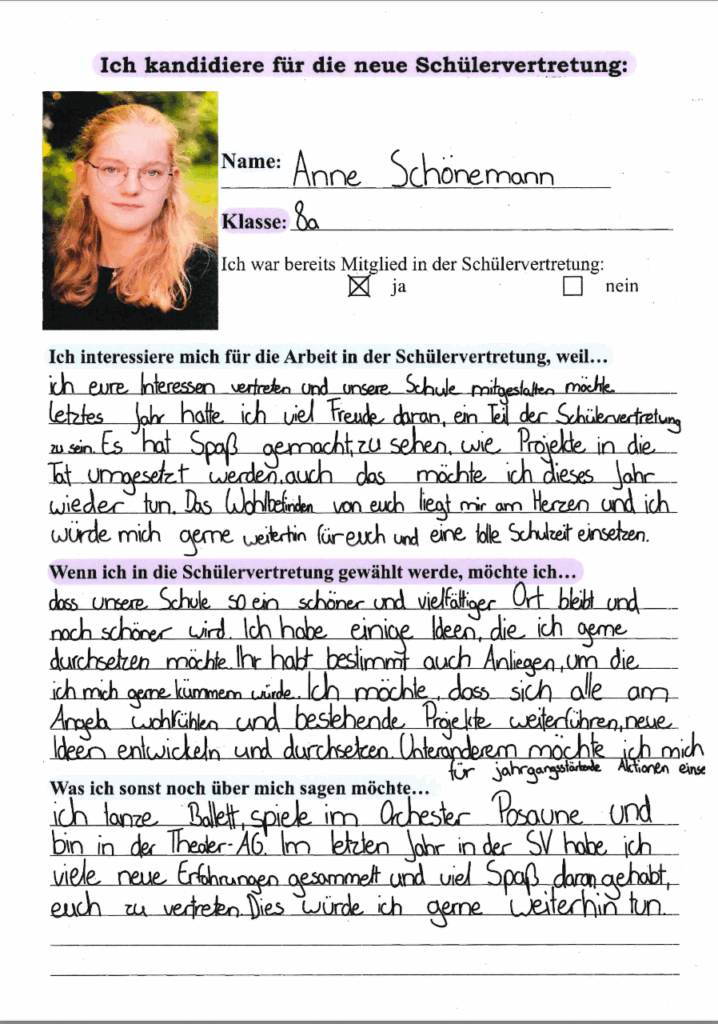 Ich kandidiere für die neue Schülervertretung:
Name: Anne Schönemann
Klasse: 8a
Ich war bereits Mitglied in der Schülervertretung:
☒ ja ☐ nein
Ich interessiere mich für die Arbeit in der Schülervertretung, weil…
ich eure Interessen vertreten und unsere Schule mitgestalten möchte.
letztes Jahr hatte ich viel Freude daran, ein Teil der Schülervertretung
zu sein. Es hat Spaß gemacht, zu sehen, wie Projekte in die
Tat umgesetzt werden, auch das möchte ich dieses Jahr
wieder tun. Das Wohlbefinden von euch liegt mir am Herzen und ich
würde mich gerne weiterhin für euch und eine tolle Schulzeit einsetzen.
Wenn ich in die Schülervertretung gewählt werde, möchte ich…
dass unsere Schule so ein schöner und vielfältiger Ort bleibt und
noch schöner wird. Ich habe einige Ideen, die ich gerne
durchsetzen möchte. Ihr habt bestimmt auch Anliegen, um die
ich mich gerne kümmern würde. Ich möchte, dass sich alle am
Angela wohlfühlen und bestehende Projekte weiterführen, neue
Ideen entwickeln und durchsetzen. Unteranderem möchte ich mich
für jahrgangsstärkende Aktionen einse
Was ich sonst noch über mich sagen möchte…
ich tanze Ballett, spiele im Orchester Posaune und
bin in der Theater-AG. Im letzten Jahr in der SV habe ich
viele neue Erfahrungen gesammelt und viel Spaß daran gehabt,
euch zu vertreten. Dies würde ich gerne weiterhin tun.